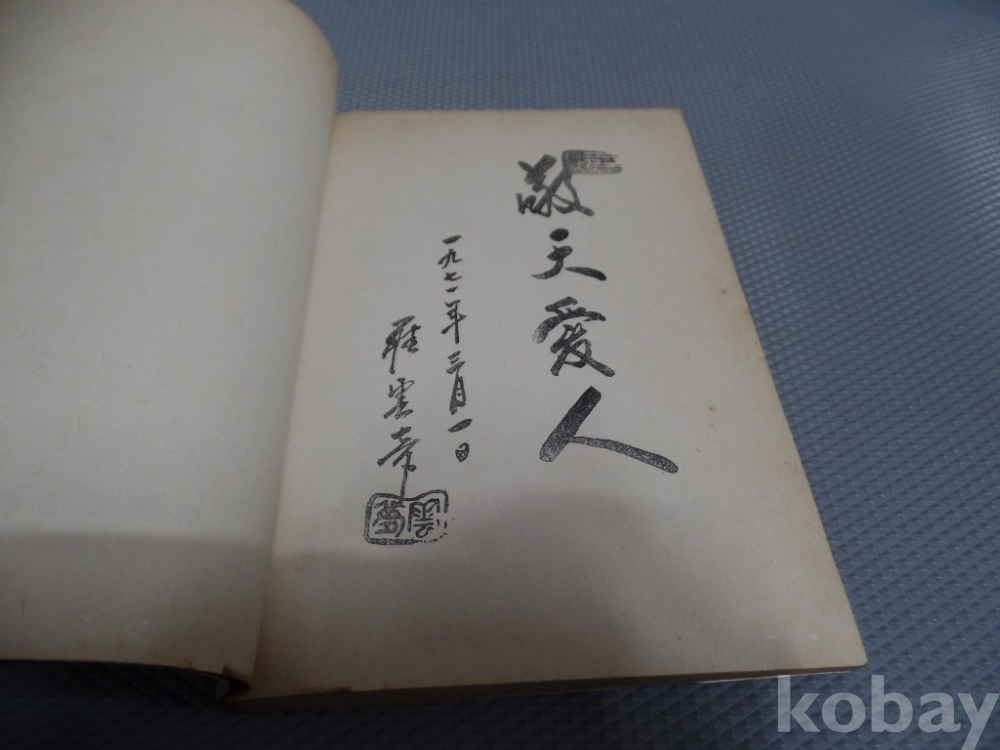 敬天愛人
一九七一年三月一日
kobay